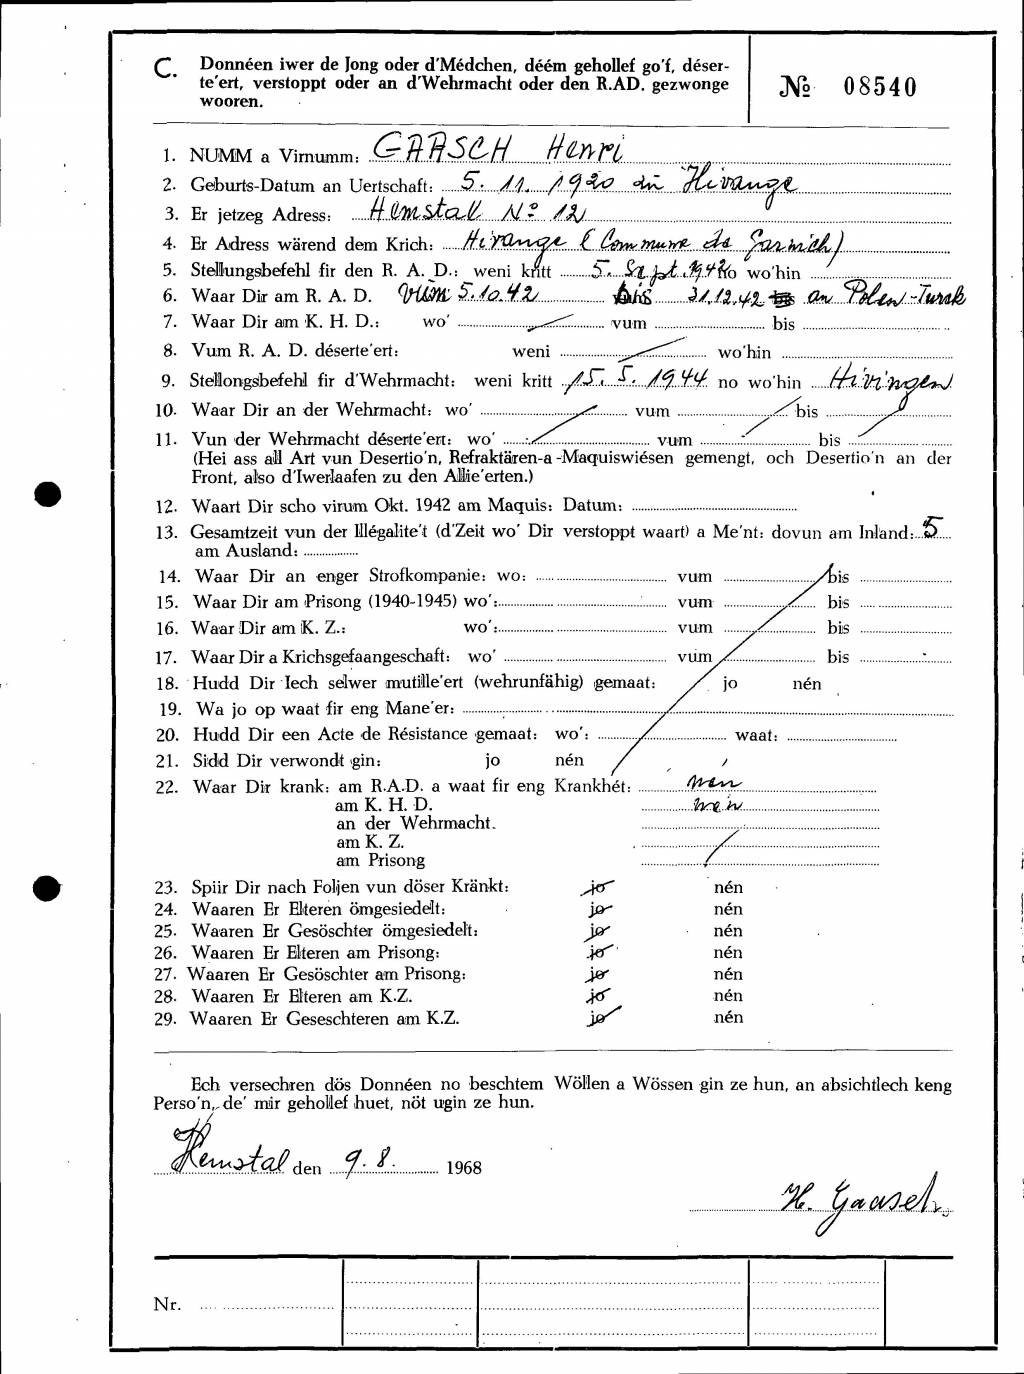 C. Donnéen iwer de Jong oder d'Médchen, déém gehollef go'f, déser-
te'ert, verstoppt oder an d'Wehrmacht oder den R.AD. gezwonge
wooren.
No 08540
1. NUMM a Virnumm: GAASCH Henri
2. Geburts-Datum an Uertschaft: 5. 11. 1920 zu Hivange
3. Er jetzeg Adress: Hemstal No 12
4. Er Adress wärend dem Krich: Hivange (Commune de Garnich)
5. Stellungsbefehl fir den R. A. D.: weni kritt 5. Sept. 1942 no wo'hin
6. Waar Dir am R. A. D. vum 5.10.42 bis 31.12.42 an Polen-Turek
7. Waar Dir am K. H. D.: wo' vum bis
8. Vum R. A. D. déserte'ert: weni wo'hin
9. Stellongsbefehl fir d'Wehrmacht: weni kritt 15. 5. 1944 no wo'hin Hivingen
10. Waar Dir an der Wehrmacht: wo' vum bis
11. Vun der Wehrmacht déserte'ert: wo' vum bis
(Hei ass all Art vun Desertio'n, Refraktären-a-Maquiswiésen gemengt, och Desertio'n an der
Front, also d'Iwerlaafen zu den Allie'erten.)
12. Waart Dir scho virum Okt. 1942 am Maquis: Datum:
13. Gesamtzeit vun der Illégalite't (d'Zeit wo' Dir verstoppt waart) a Me'nt: dovun am Inland: 5
am Ausland:
14. Waar Dir an enger Strofkompanie: wo: vum bis
15. Waar Dir am Prisong (1940-1945) wo': vum bis
16. Waar Dir am K. Z.: wo': vum bis
17. Waar Dir a Krichsgefaangeschaft: wo' vum bis
18. Hudd Dir Iech selwer mutille'ert (wehrunfähig) gemaat: jo nén
19. Wa jo op waat fir eng Mane'er:
20. Hudd Dir een Acte de Résistance gemaat: wo': waat:
21. Sidd Dir verwondt gin: jo nén
22. Waar Dir krank: am R.A.D. a waat fir eng Krankhét: nén
am K. H. D. nen
an der Wehrmacht.
am K. Z.
am Prisong
23. Spiir Dir nach Foljen vun döser Kränkt: jo nén
24. Waaren Er Elteren ömgesiedelt: jo nén
25. Waaren Er Gesöschter ömgesiedelt: jo nén
26. Waaren Er Elteren am Prisong: jo nén
27. Waaren Er Gesöschter am Prisong: jo nén
28. Waaren Er Elteren am K.Z. jo nén
29. Waaren Er Geseschteren am K.Z. jo nén
Ech versechren dös Donnéen no beschtem Wöllen a Wössen gin ze hun, an absichtlech keng
Perso'n, de' mir gehollef huet, nöt ugin ze hun.
Hemstal den 9. 8. 1968
H. Gaasch
Nr.